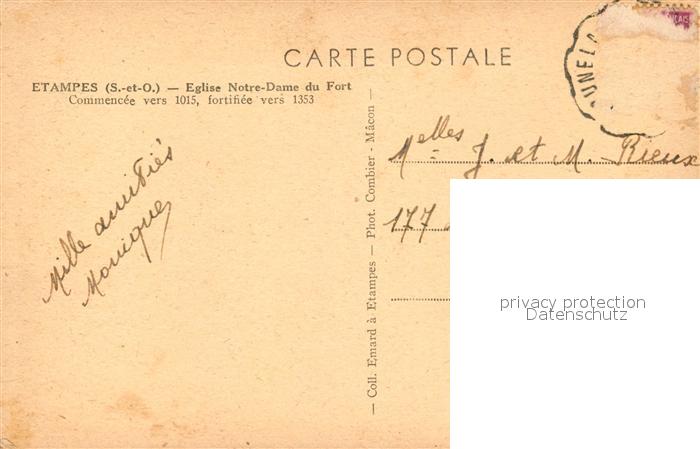 CARTE POSTALE
ETAMPES (S.-et-O.) — Eglise Notre-Dame du Fort
Commencée vers 1015, fortifiée vers 1353
Mille amitiés
Monique
— Coll. Emard à Etampes — Phot. Combier - Mâcon —
Melles J. et M. Rieux
177
privacy protection
Datenschutz